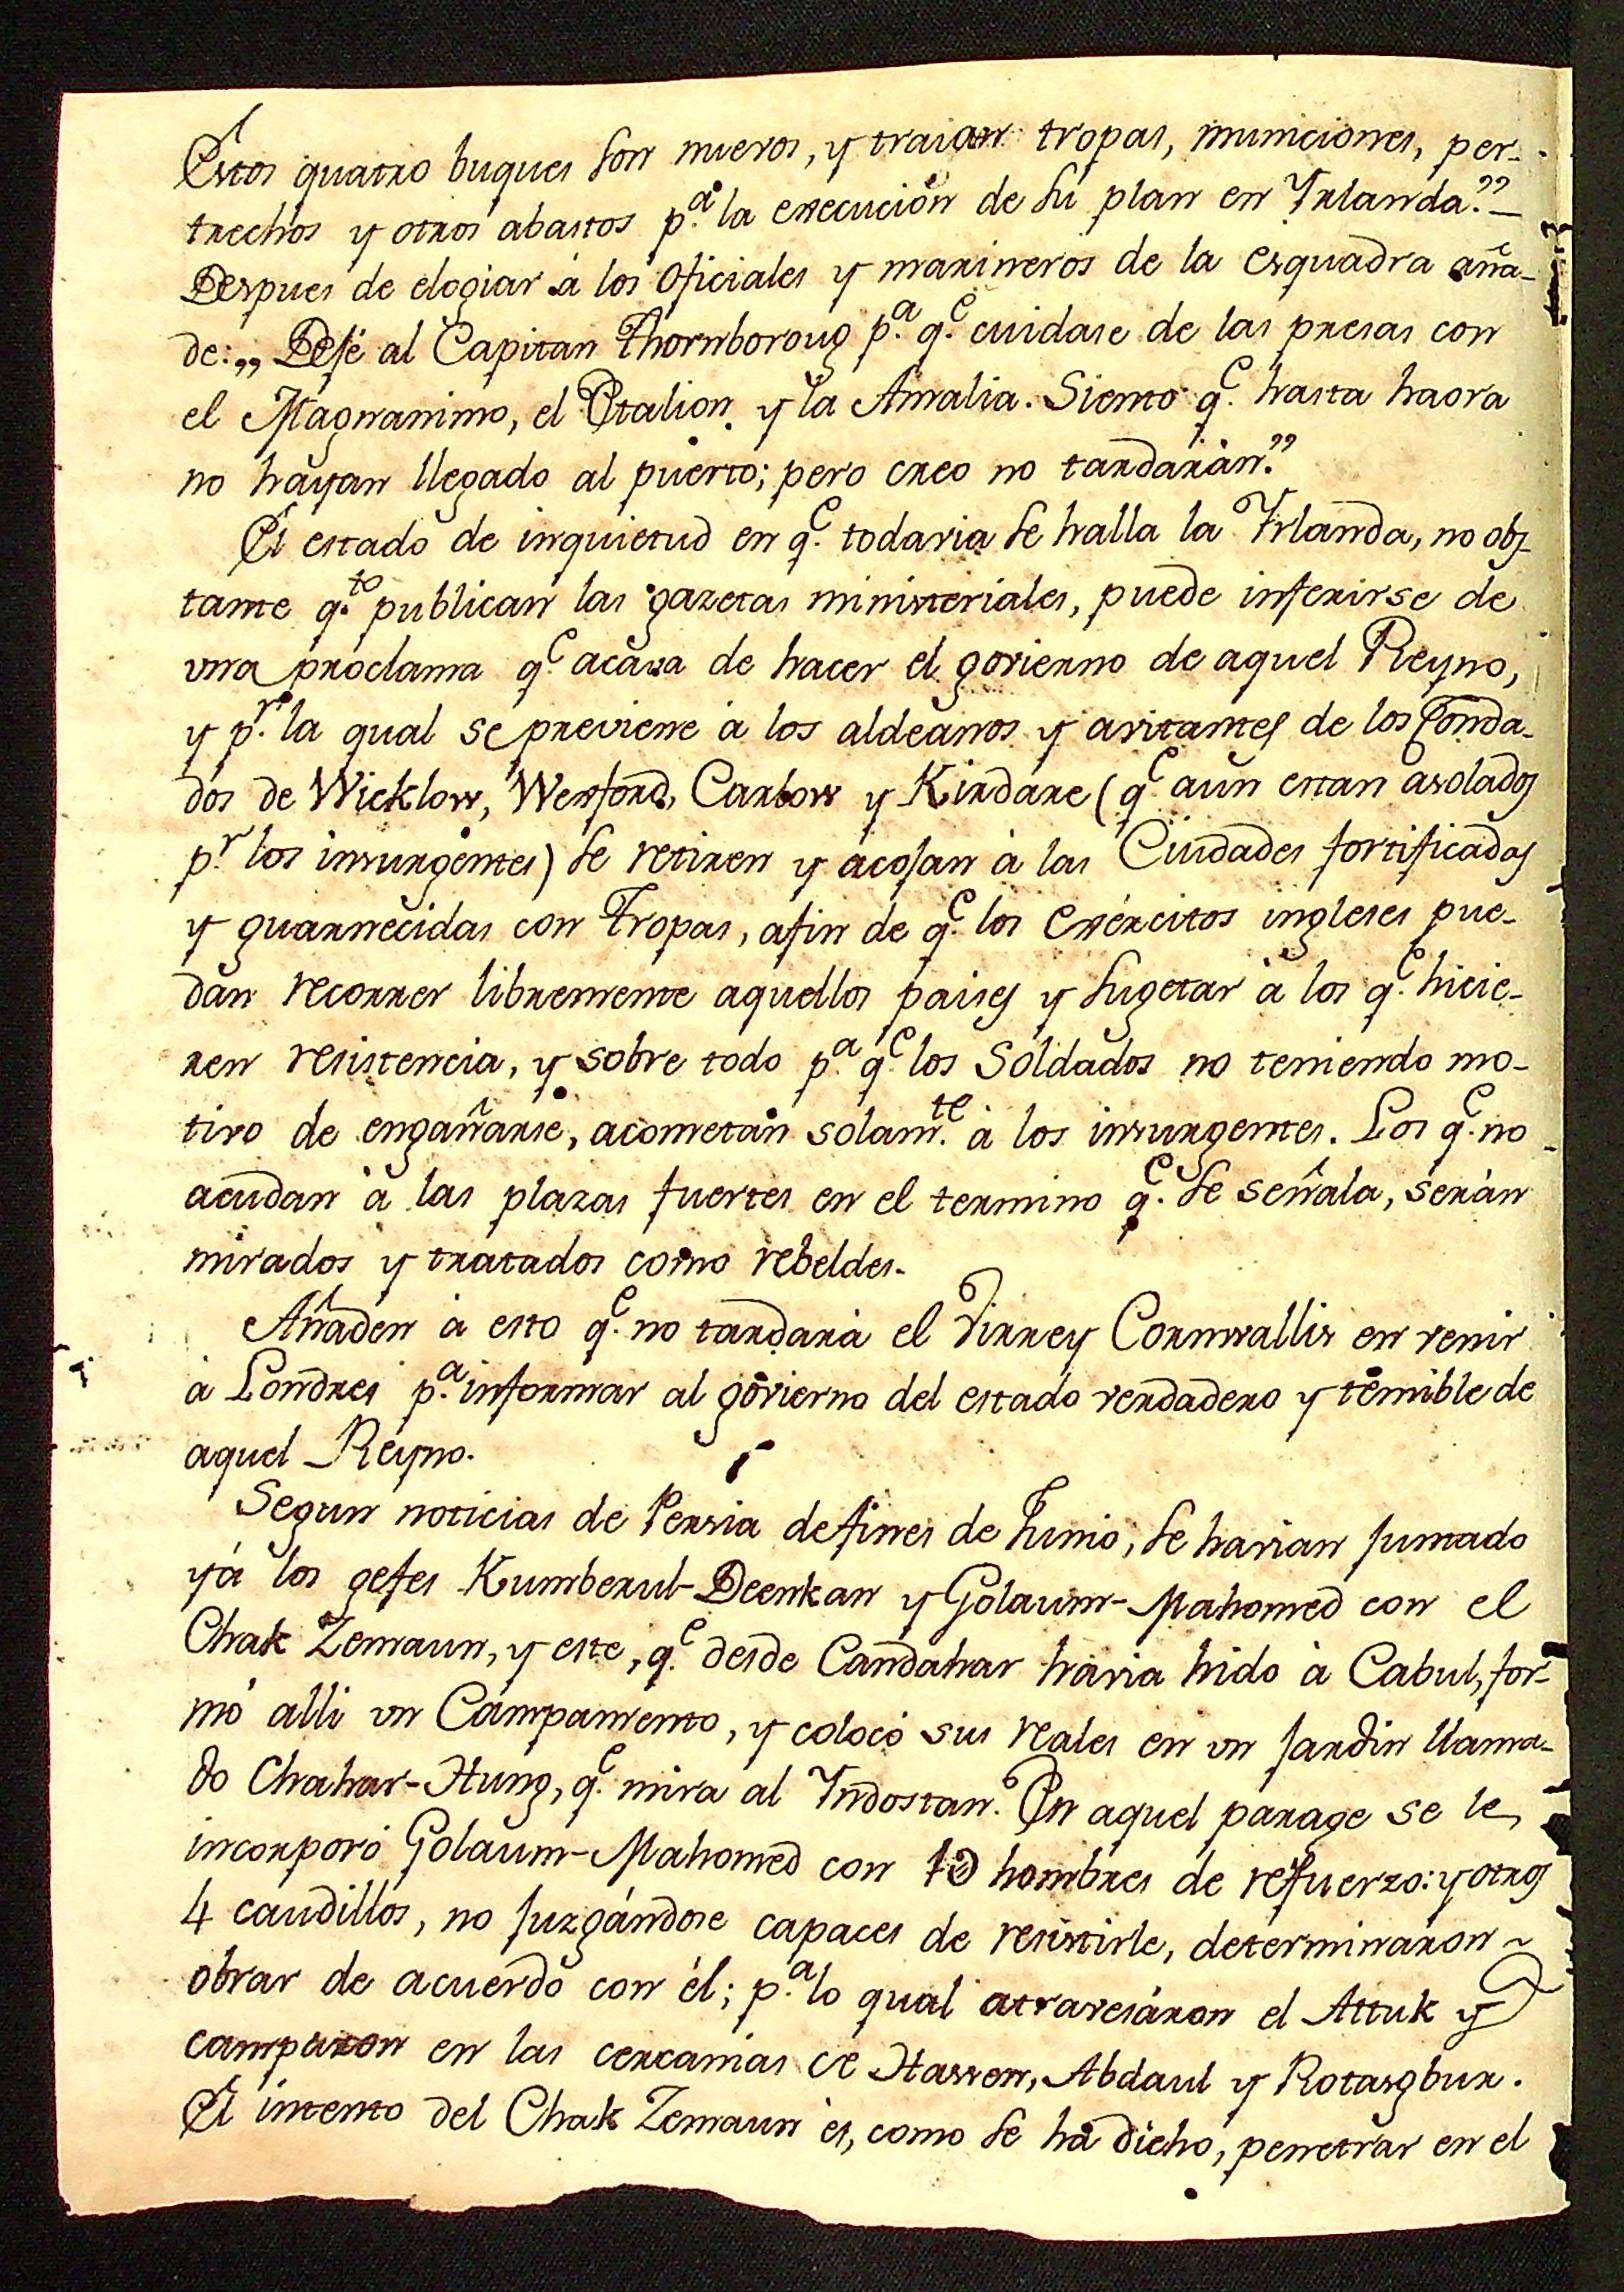 Estos quatro buques son nuevos, y traian tropas, municiones, per-
trechos y otros abastos p.ª la execución de su plan en Yrlanda." —
Despues de elogiar à los Oficiales y marineros de la esquadra aña-
de: „ Dejé al Capitan Thornboroug p.ª q.e cuidase de las presas con
el Magnanimo, el Etalion y la Amalia. Siento q.e hasta haora
no hayan llegado al puerto; pero creo no tardarán."
El estado de inquietud en q.e todavia se halla la Yrlanda, no obs-
tante q.to publican las gazetas ministeriales, puede inferirse de
una proclama q.e acava de hacer el govierno de aquel Reyno,
y p.r la qual se previene à los aldeanos y avitantes de los Conda-
dos de Wicklow, Wexford, Carlow y Kirdare (q.e aun estan asolados
p.r los insurgentes) se retiren y acojan à las Ciudades fortificadas
y guarnecidas con Tropas, afin de q.e los exércitos ingleses pue-
dan recorrer libremente aquellos paises y sugetar à los q.e hicie-
ren resistencia, y sobre todo p.ª q.e los Soldados no teniendo mo-
tivo de engañarse, acometan solam.te à los insurgentes. Los q.e no
acudan à las plazas fuertes en el termino q.e se señala, serán
mirados y tratados como rebeldes.
Añaden à esto q.e no tardarà el Virrey Cornwallis en venir
à Londres p.ª informar al govierno del estado verdadero y temible de
aquel Reyno.
Segun noticias de Persia de fines de Junio, se havian juntado
yá los gefes Kumberul-Deenkan y Golaum-Mahomed con el
Chak Zemaun, y este, q.e desde Candahar havia hido à Cabul, for-
mó alli un Campamento, y colocó sus reales en un jardin llama-
do Chahar-Hung, q.e mira al Yndostan. En aquel parage se le
incorporó Golaum-Mahomed con 10 hombres de refuerzo: y otros
4 caudillos, no juzgándose capaces de resistirle, determinaron
obrar de acuerdo con él; p.ª lo qual atravesáron el Attuk y
camparon en las cercanias de Hassen, Abdaul y Rotasgbur.
El intento del Chak Zemaun es, como se ha dicho, penetrar en el